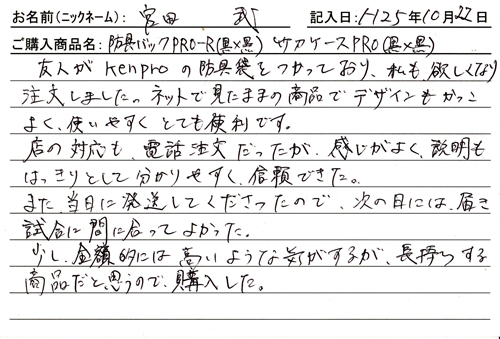 お名前(ニックネーム): 宮田 武 記入日:H25年10月22日
ご購入商品名: 防具バックPRO-R(黒×黒) サカケースPRO(黒×黒)
友人がKenproの防具袋をつかっており、私も欲しくなり
注文しました。ネットで見たままの商品でデザインもかっこ
よく、使いやすくとても便利です。
店の対応も、電話注文だったが、感じがよく、説明も
はっきりとして分かりやすく、信頼できた。
また、当日に発送してくださったので、次の日には、届き
試合に間に合ってよかった。
少し、金額的には高いような気がするが、長持ちする
商品だと思うので、購入した。